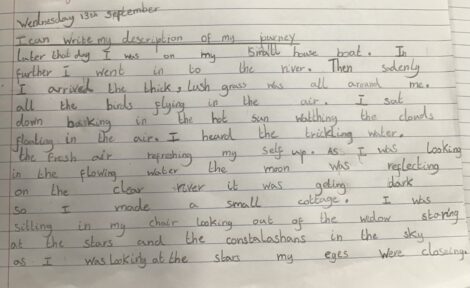 Wednesday 13th September
I can write my description of my journey
Later that day I was on my small house boat. In
further I went in to the river. Then sudenly
I arrived the thick, lush grass was all around me.
all the birds flying in the air. I sat
down basking in the hot sun watching the clouds
floating in the air. I heard the trickling water.
the fresh air refreshing my self up. As I was looking
in the flowing water the moon was reflecting
on the clear river it was geting dark
so I made a small cottage. I was
sitting in my chair looking out of the widow staring
at the stars and the constalashans in the sky
as I was looking at the stars my eyes were closeing.